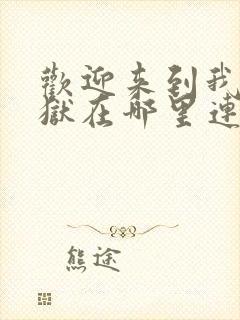 歡迎来到我
獄在哪里連
熊途